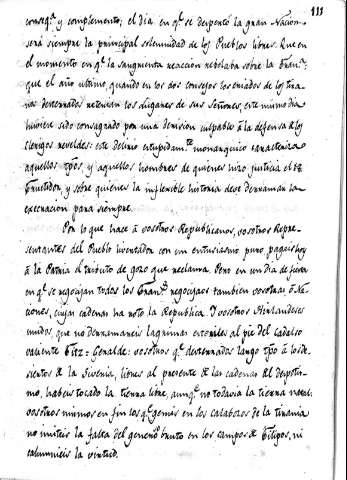 111
conseq.ª y complemento; el dia en q.e se despertó la gran Nacion
será siempre la principal solemnidad de los Pueblos libres. Que en
el momento en q.e la sangrienta reaccion volaba sobre la Fran.ª;
que el año ultimo, quando en los dos consejos los enviados de los tira-
nos desterrados los Sluganes de sus Señores, este mismo dia
huviere sido consagrado por una decision culpable á la defensa de los
Clerigos reveldes: este delirio estupidam.te monarquico caracteriza
aquellos tpõs, y aquellos hombres de quienes hizo justicia el 18
Fructidor, y sobre quienes la inflexible historia debe derramar la
execracion para siempre.
Por lo que hace á vosotros Republicanos, vosotros Repre-
sentantes del Pueblo con un entusiasmo puro pagais hoy
á la Patria el tributo de gozo que reclama. Pero en un dia de fiesta
en q.e se regocijan todos los Fran.s regocijaos tambien vosotras ó Na-
ciones, cuyas cadenas ha roto la Republica. Y vosotros Hirlandeses
unidos, que no derramareis lagrimas esteriles al pie del cadalso
valiente Fitz=Geralde: vosotros q.e desterrados largo tpõ á los de-
siertos de la Siveria, libres al presente de las cadenas del despotis-
mo, habeis tocado la tierra libre, aunq.e no todavia la tierra natal:
vosotros mismos en fin los q.e gemis en los calabozos de la tirania
no imiteis la falta del genero.so bruto en los campos de Filipos, ni
calumnieis la virtud.